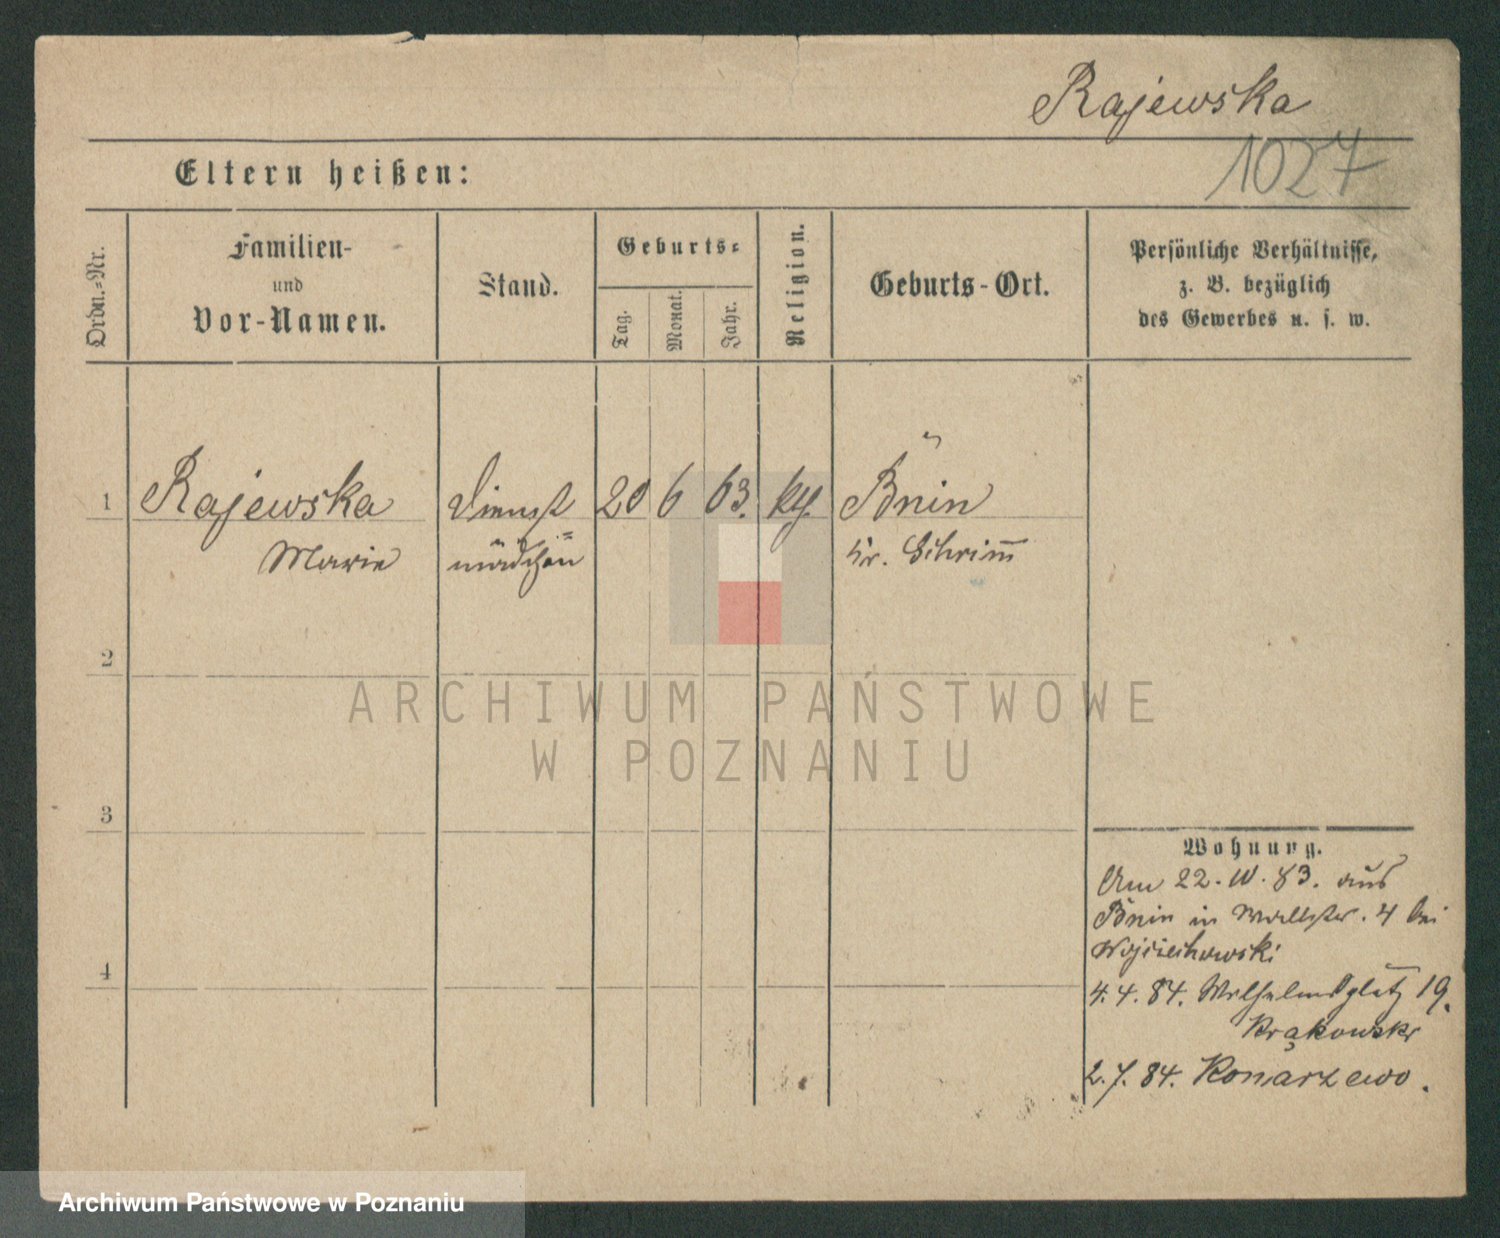 Rajewska
1027
Eltern heißen:
Ordn.=Nr.
Familien-
und
Vor-Namen.
Stand.
Geburts=
Tag.
Monat.
Jahr.
Religion.
Geburts-Ort.
Persönliche Verhältnisse,
z. B. bezüglich
des Gewerbes u. s. w.
1 Rajewska Dienst 20 6 63. kth. Bnin
Marie mädchen Kr. Schrimm
2
3
4
ARCHIWUM PAŃSTWOWE
W POZNANIU
Wohnung.
Am 22. IV. 83. aus
Bnin in Wallstr. 4 bei
Wojciechowski
4. 4. 84. Wilhelmsplatz 19.
Krakowski
2. 7. 84. Konarzewo.
Archiwum Państwowe w Poznaniu